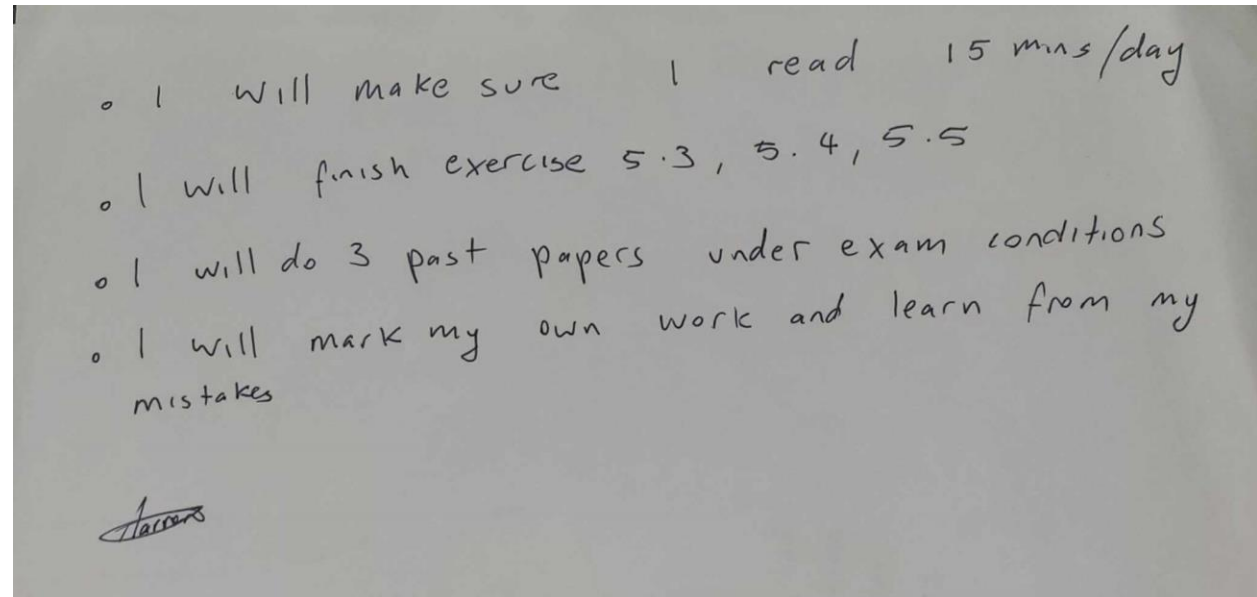 • I will make sure I read 15 mins/day
• I will finish exercise 5.3, 5.4, 5.5
• I will do 3 past papers under exam conditions
• I will mark my own work and learn from my
mistakes